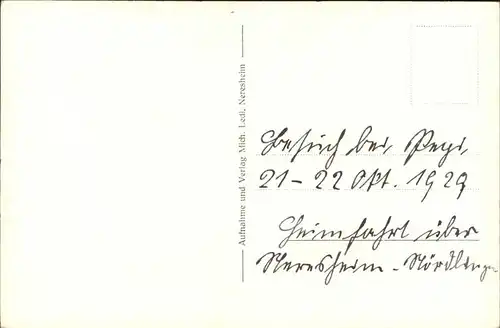 Aufnahme und Verlag Mich. Ledl, Neresheim
Besuch bei Pepi,
21-22 Okt. 1929
Heimfahrt über
Neresheim - Nördlingen